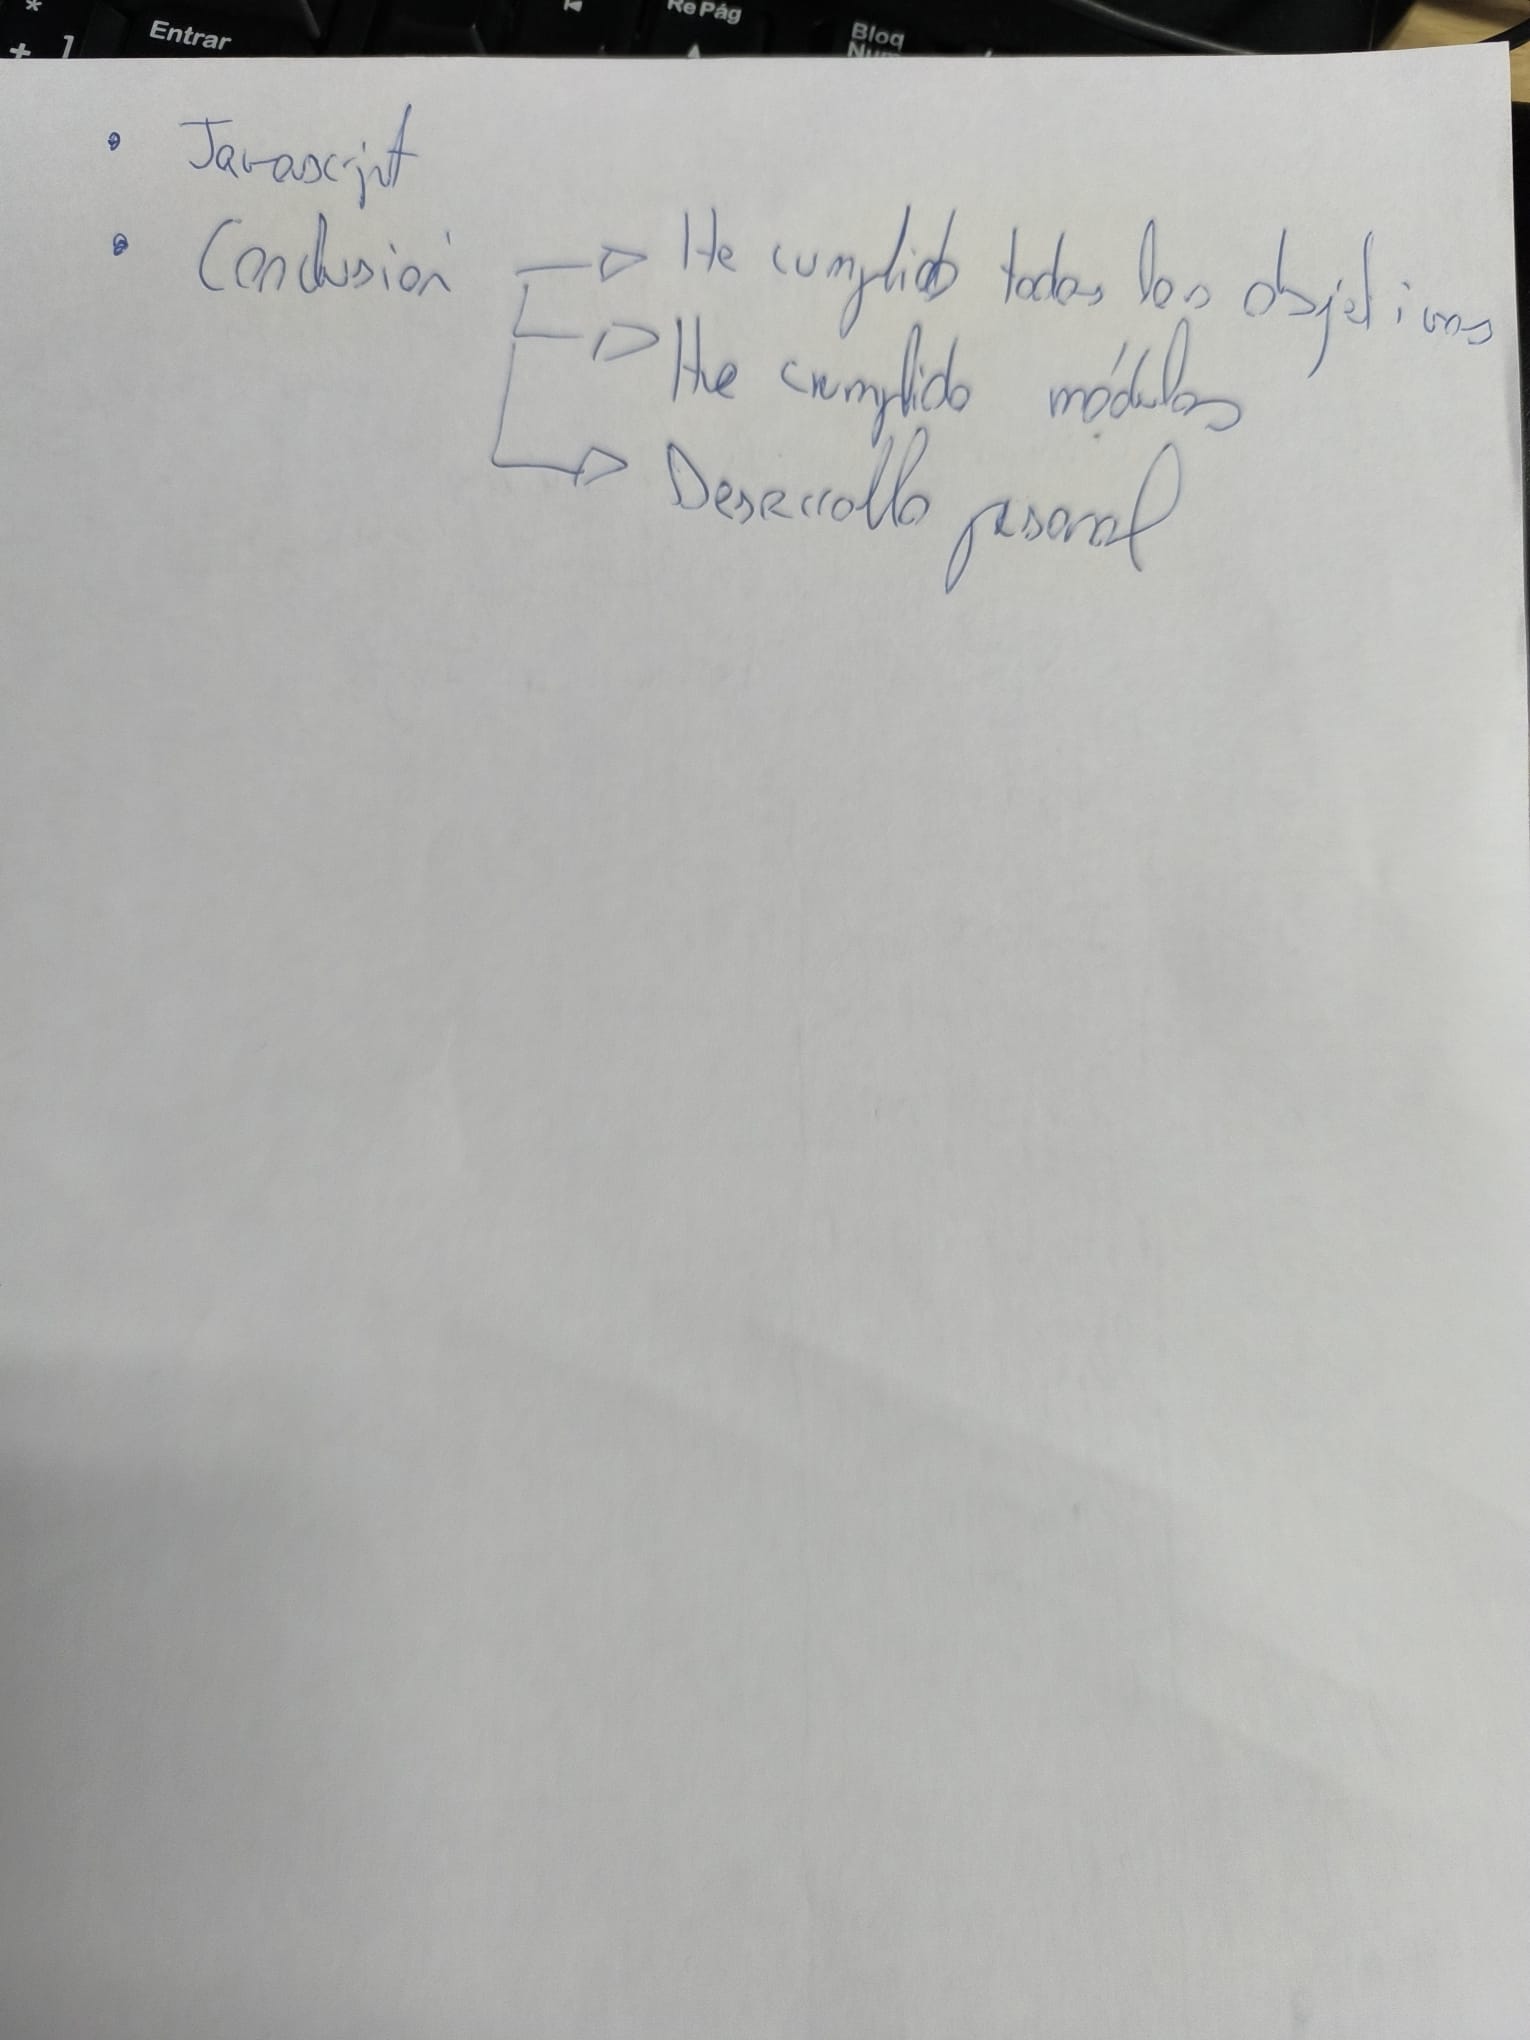 * Entrar Re Pág Bloq
+ ] Num
• Javascript
• Conclusión → He cumplido todos los objetivos
→ He cumplido módulos
→ Desarrollo personal